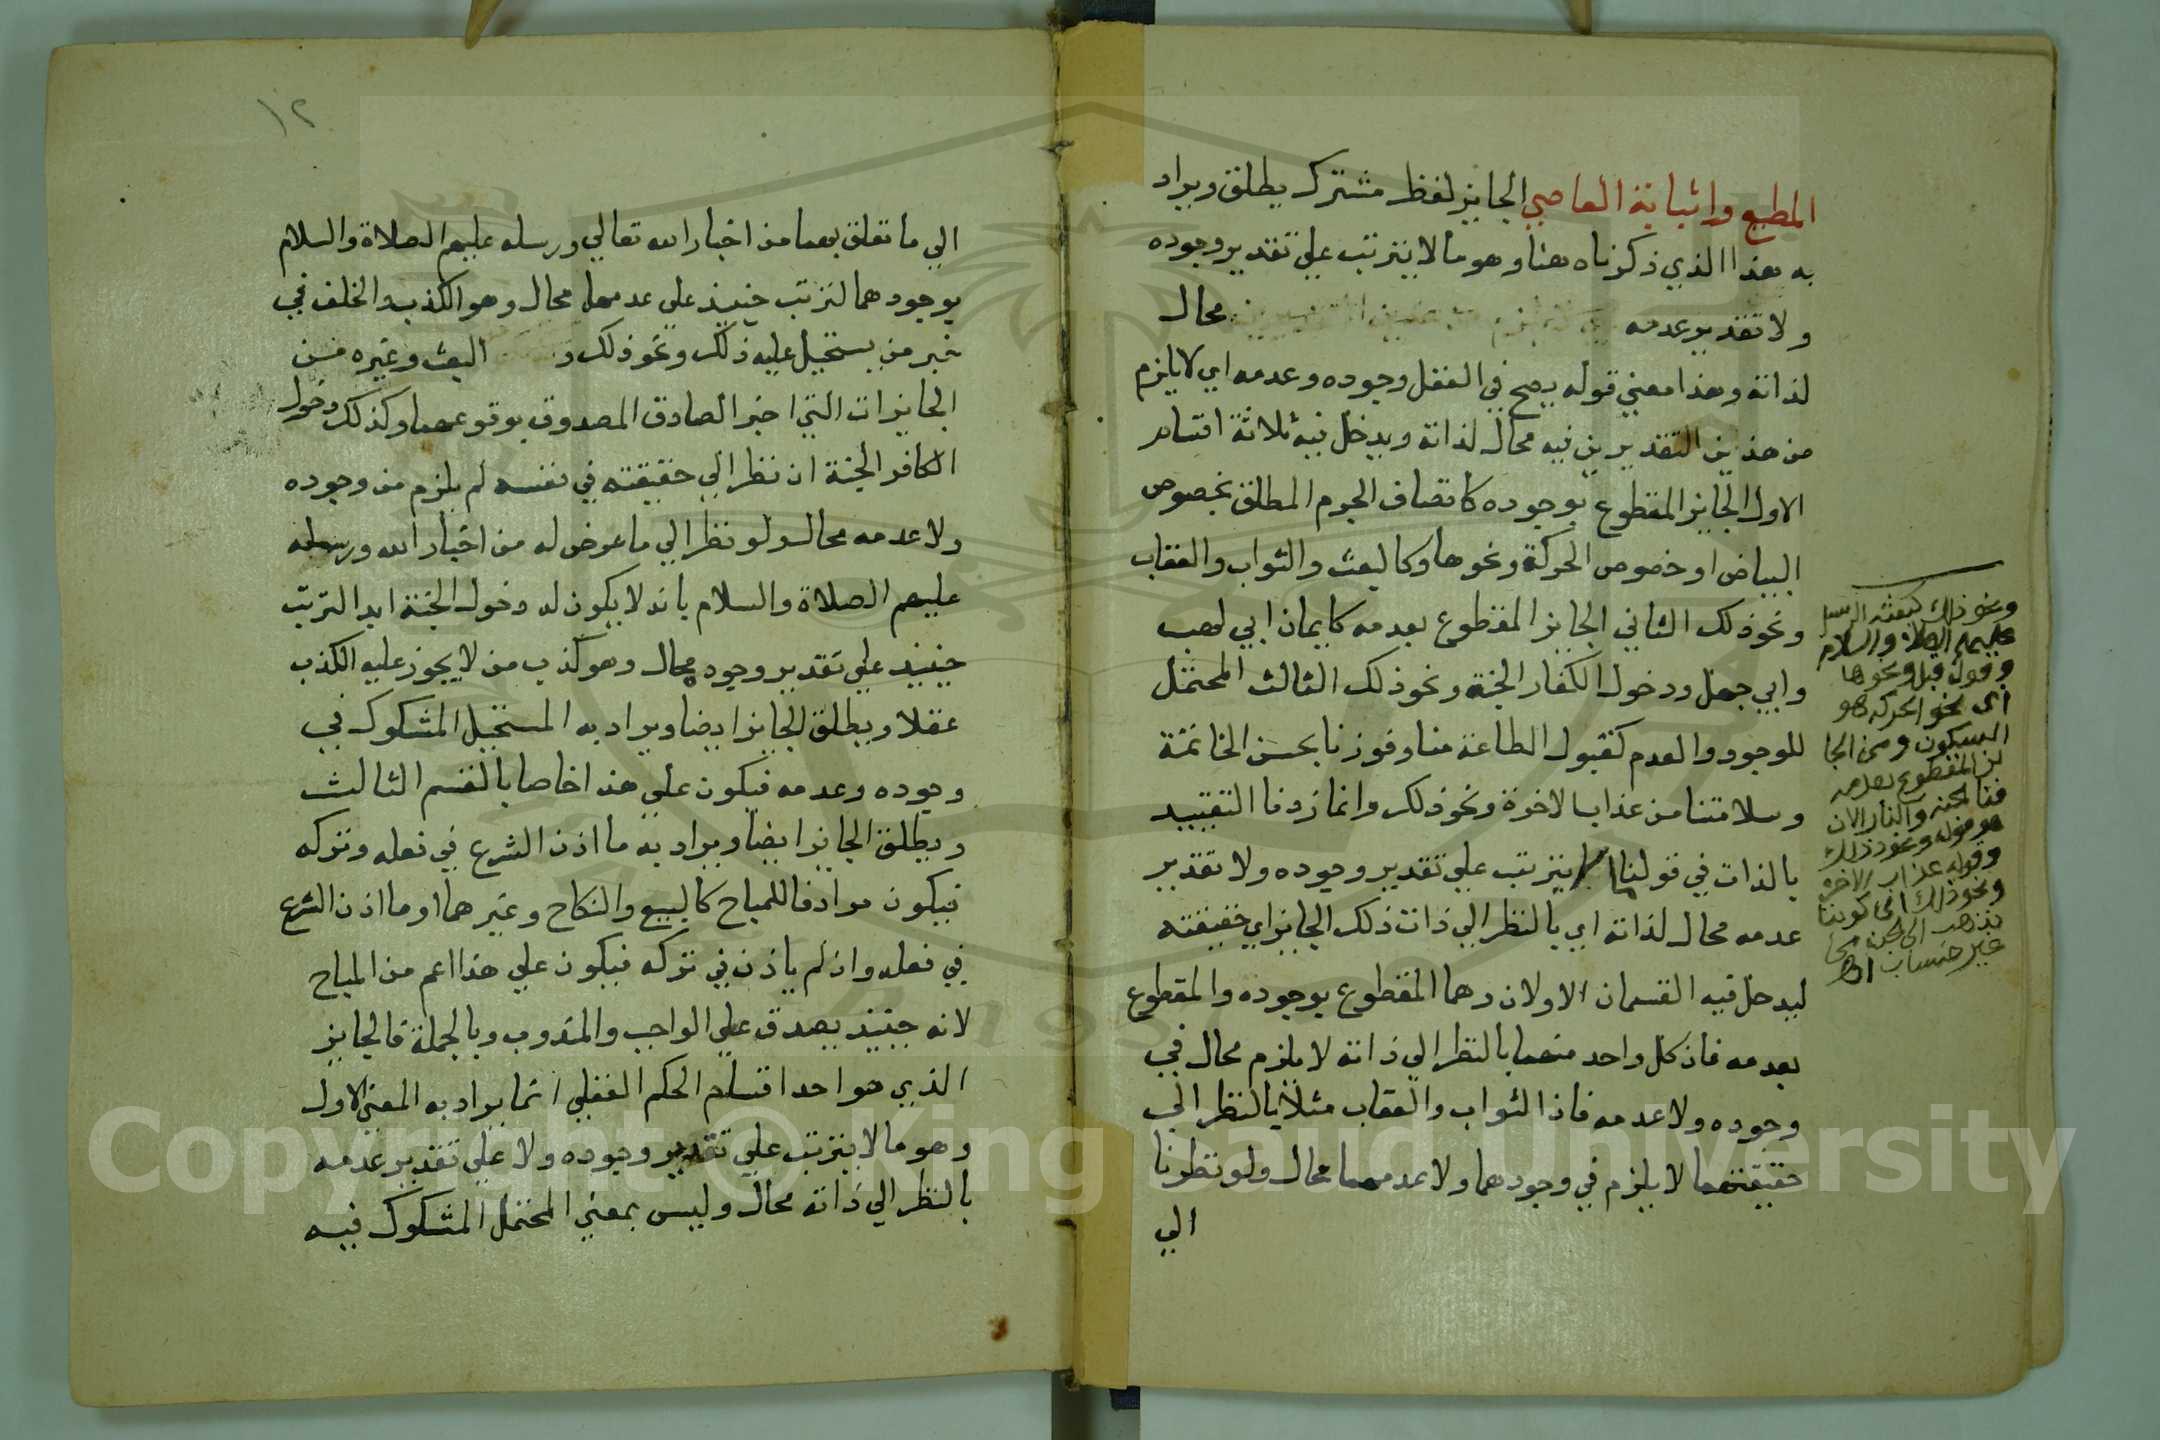 المطيع واثابة العاصي الجايز لفظ مشترك يطلق ويراد
به هذا الذي ذكرناه هنا وهو ما لا يترتب علي تقدير وجوده
ولا تقدير عدمه محال
لذاته وهذا معني قوله يصح في العقل وجوده وعدمه اي لا يلزم
من هذين التقديرين فيه محال لذاته ويدخل فيه ثلاثة اقسام
الاول الجايز المقطوع بوجوده كاتصاف الجرم المطلق بخصوص
البياض او خصوص الحركة ونحوها وكالبعث والثواب والعقاب
ونحو ذلك الثاني الجايز المقطوع بعدمه كايمان ابي لهب
وابي جهل ودخول الكفار الجنة ونحو ذلك الثالث المحتمل
للوجود والعدم كقبول الطاعة منا وفوزنا بحسن الخاتمة
وسلامتنا من عذاب الاخرة ونحو ذلك وانما زدنا التقييد
بالذات في قولنا لا يترتب علي تقدير وجوده ولا تقدير
عدمه محال لذاته اي بالنظر الي ذات ذلك الجايز اي حقيقته
ليدخل فيه القسمان الاولان وهما المقطوع بوجوده والمقطوع
بعدمه فان كل واحد منهما بالنظر الي ذاته لا يلزم محال في
وجوده ولا عدمه فاذ الثواب والعقاب مثلا بالنظر الي
حقيقتهما لا يلزم في وجودهما ولا عدمهما محال ولو نظرنا
الي
ونحو ذلك كبعثه الرسل
عليهم الصلاة والسلام
وقوله قبل ونحوها
اى نحو الحركه هو
السكون ومن الجا
يز المقطوع بعدمه
فنا الجنه والنار الان
هو قوله ونحو ذلك
وقوله عذاب الاخرة
ونحو ذلك اى كوننا
نذهب الى الجنه
غير حساب اهـ
١٢
الي ما تعلق بهما من اخبار الله تعالي ورسله عليهم الصلاة والسلام
بوجودهما لترتب حينيذ على عدمهما محال وهو الكذب والخلف في
خبر من يستحيل عليه ذلك ونحو ذلك البعث وغيره من
الجايزات التي اخبر الصادق المصدوق بوقوعها وكذلك دخول
الكافر الجنة ان نظر الي حقيقته في نفسه لم يلزم من وجوده
ولا عدمه محال ولو نظر الي ما عرض له من اخبار الله ورسله
عليهم الصلاة والسلام بانه لا يكون له دخول الجنة ابدا لترتب
حينيذ علي تقدير وجوده محال وهو كذب من لا يجوز عليه الكذب
عقلا ويطلق الجايز ايضا ويراد به المستحيل المشكوك في
وجوده وعدمه فيكون علي هذا خاصا بالقسم الثالث
ويطلق الجايز ايضا ويراد به ما اذن الشرع في فعله وتركه
فيكون مرادفا للمباح كالبيع والنكاح وغيرهما او ما اذن الشرع
في فعله وان لم ياذن في تركه فيكون علي هذا اعم من المباح
لانه حينيذ يصدق علي الواجب والمندوب وبالجملة فالجايز
الذي هو احد اقسام الحكم العقلي انما يراد به المعني الاول
وهو ما لا يترتب علي تقدير وجوده ولا علي تقدير عدمه
بالنظر الي ذاته محال وليس بمعني المحتمل المشكوك فيه
Copyright © King Saud University